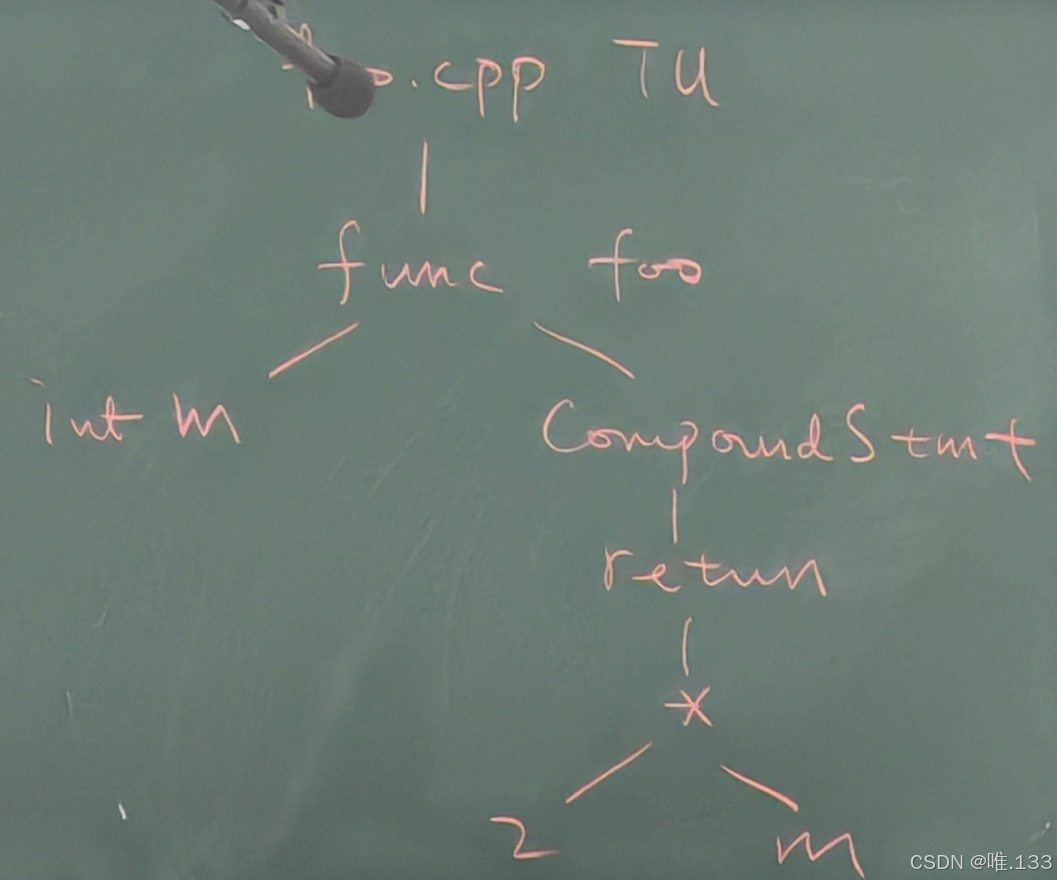 .cpp TU
func foo
int m
CompoundStmt
return
*
2 m
CSDN @唯.133